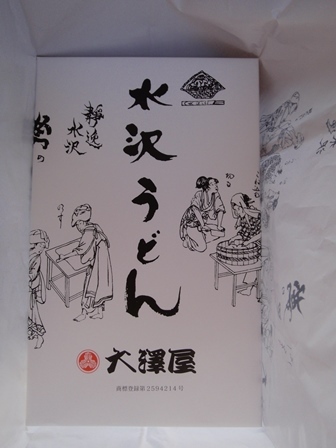 水沢うどん
静逸
水沢
のす
大澤屋
商標登録第2594214号